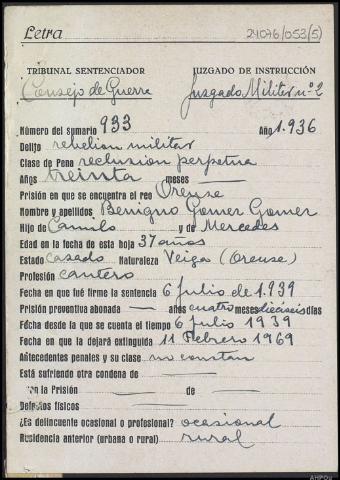 Letra
24076/053(5)
TRIBUNAL SENTENCIADOR JUZGADO DE INSTRUCCIÓN
Consejo de Guerra Juzgado Militar nº 2
Número del sumario 933 Año 1.936
Delito rebelion militar
Clase de Pena reclusion perpetua
Años treinta meses
Prisión en que se encuentra el reo Orense
Nombre y apellidos Benigno Gomez Gomez
Hijo de Camilo y de Mercedes
Edad en la fecha de esta hoja 37 años
Estado casado Naturaleza Veiga (Orense)
Profesión cantero
Fecha en que fué firme la sentencia 6 Julio de 1.939
Prisión preventiva abonada — años cuatro meses dieciseis días
Fécha desde la que se cuenta el tiempo 6 Julio 1939
Fecha en que la dejará extinguida 11 Febrero 1969
Antecedentes penales y su clase no constan
Está sufriendo otra condena de
en la Prisión de
Defectos físicos
¿Es delincuente ocasional o profesional? ocasional
Residencia anterior (urbana o rural) rural
AHPOu